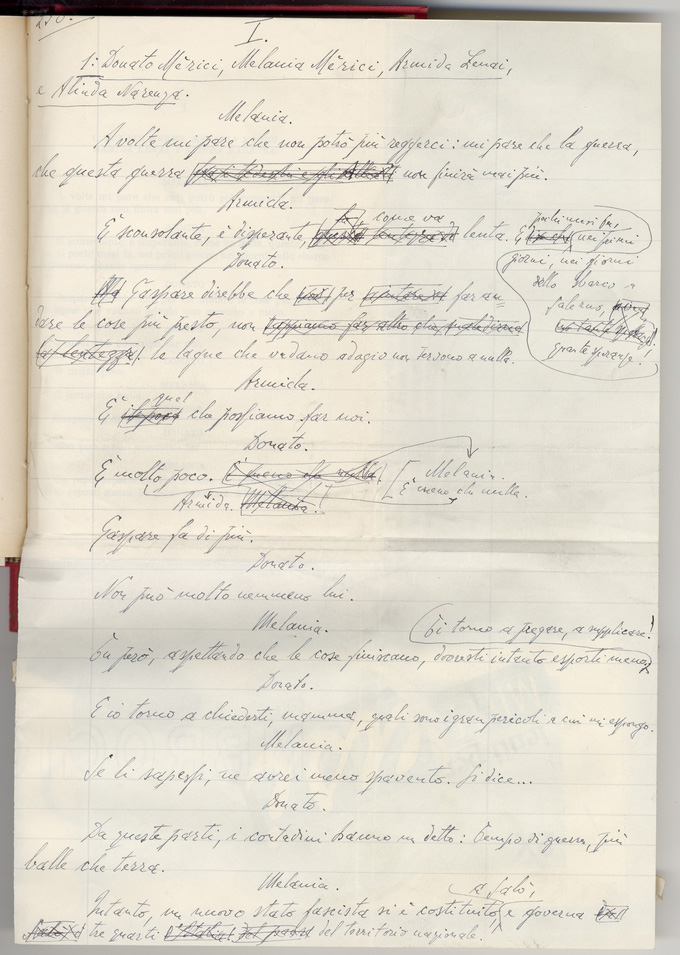 I.
1: Donato Mèrici, Melania Mèrici, Armida Lenai,
e Alinda Narenza.
Melania.
A volte mi pare che non potrò più reggerci: mi pare che la guerra,
che questa guerra non finirà mai più.
Armida.
È sconsolante, è disperante, come va lenta. E
pochi mesi fa,
nei primi
giorni, nei giorni
dello sbarco a
Salerno,
quante speranze!
Donato.
Gaspare direbbe che per far an-
dare le cose più presto, non
le lagne che vadano adagio non servono a nulla.
Armida.
quel
È che possiamo far noi.
Donato.
È molto poco. È meno che nulla.
Melania.
È meno che nulla.
Armida. Melania.
Gaspare fa di più.
Donato.
Non può molto nemmeno lui.
Melania.
Ti torno a pregare, a supplicare!
Tu però, aspettando che le cose finiscano, dovresti intanto esporti meno,
Donato.
E io torno a chiederti, mamma, quali sono i gran pericoli a cui mi espongo.
Melania.
Se li sapessi, ne avrei meno spavento. Si dice...
Donato.
Da queste parti, i contadini hanno un detto: Tempo di guerra, più
balle che terra.
Melania.
a Salò,
Intanto, un nuovo stato fascista si è costituito, e governa
tre quarti del territorio nazionale.